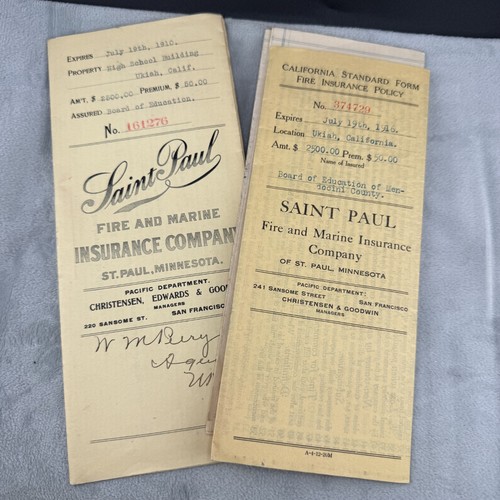 EXPIRES July 19th, 1910.
PROPERTY High School Building
Ukiah, Calif.
AM'T. $ 2500.00 PREMIUM, $ 50.00
ASSURED Board of Education.
No. 161276
Saint Paul
FIRE AND MARINE
INSURANCE COMPANY
ST. PAUL, MINNESOTA.
PACIFIC DEPARTMENT.
CHRISTENSEN, EDWARDS & GOOD
MANAGERS
220 SANSOME ST. SAN FRANCISCO
CALIFORNIA STANDARD FORM
FIRE INSURANCE POLICY
No. 374729
Expires July 19th, 1916.
Location Ukiah, California.
Amt. $ 2500.00 Prem. $ 50.00
Name of Insured
Board of Education of Men-
docini County.
SAINT PAUL
Fire and Marine Insurance
Company
OF ST. PAUL, MINNESOTA
PACIFIC DEPARTMENT:
241 SANSOME STREET SAN FRANCISCO
CHRISTENSEN & GOODWIN
MANAGERS
A-4-12-16M